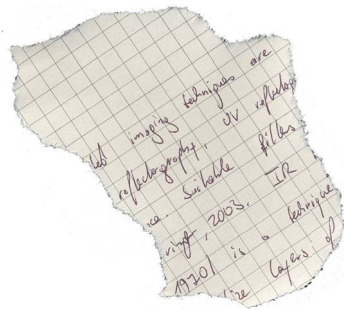 ted imaging techniques are
reflectography, UV reflectog
ce. Suitable filters
ring, 2003. IR
1970) is a technique
lize layers of